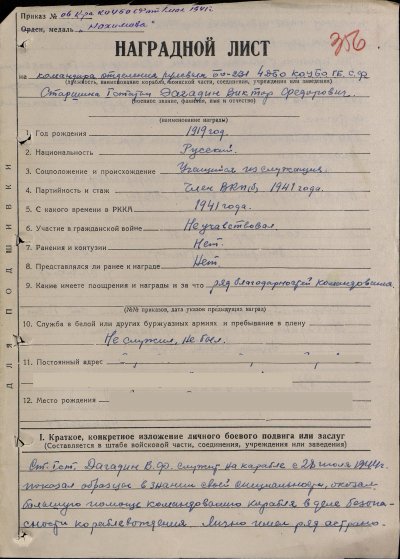 Приказ №
Орден, медаль „Нахимова“
356
НАГРАДНОЙ ЛИСТ
на командира отделения рулевых
(должность, наименование корабля, воинской части, соединения, учреждения или заведения)
Старшина Виктор Федорович.
(воинское звание, фамилия, имя и отчество)
(наименование награды)
1. Год рождения 1919 год.
2. Национальность Русский.
3. Соцположение и происхождение Учащийся из служащих.
4. Партийность и стаж Член ВКП/б/ 1941 года.
5. С какого времени в РККА 1941 года.
6. Участие в гражданской войне Не участвовал
7. Ранения и контузии Нет.
8. Представлялся ли ранее к награде Нет.
9. Какие имеет поощрения и награды и за что ряд благодарностей командования.
(№№ приказов, дата указов предыдущих наград)
10. Служба в белой или других буржуазных армиях и пребывание в плену
Не служил, не был.
11. Постоянный адрес
12. Место рождения
ДЛЯ ПОДШИВКИ
I. Краткое, конкретное изложение личного боевого подвига или заслуг
(Составляется в штабе войсковой части, соединения, учреждения или заведения)
В.Ф. служит на корабле с
показал образцы в знании своей специальности, оказал
большую помощь командованию корабля в деле безопа-
сности кораблевождения. Лично имел ряд